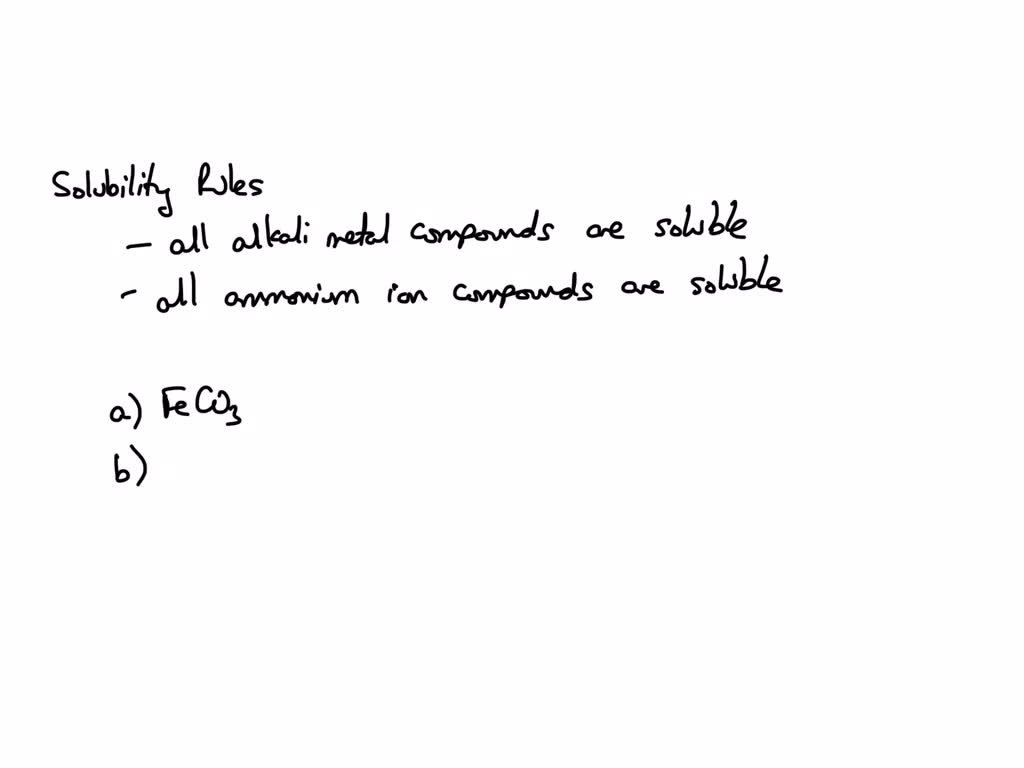 Solubility Rules
- all alkali metal compounds are soluble
- all ammonium ion compounds are soluble
a) FeCO3
b)